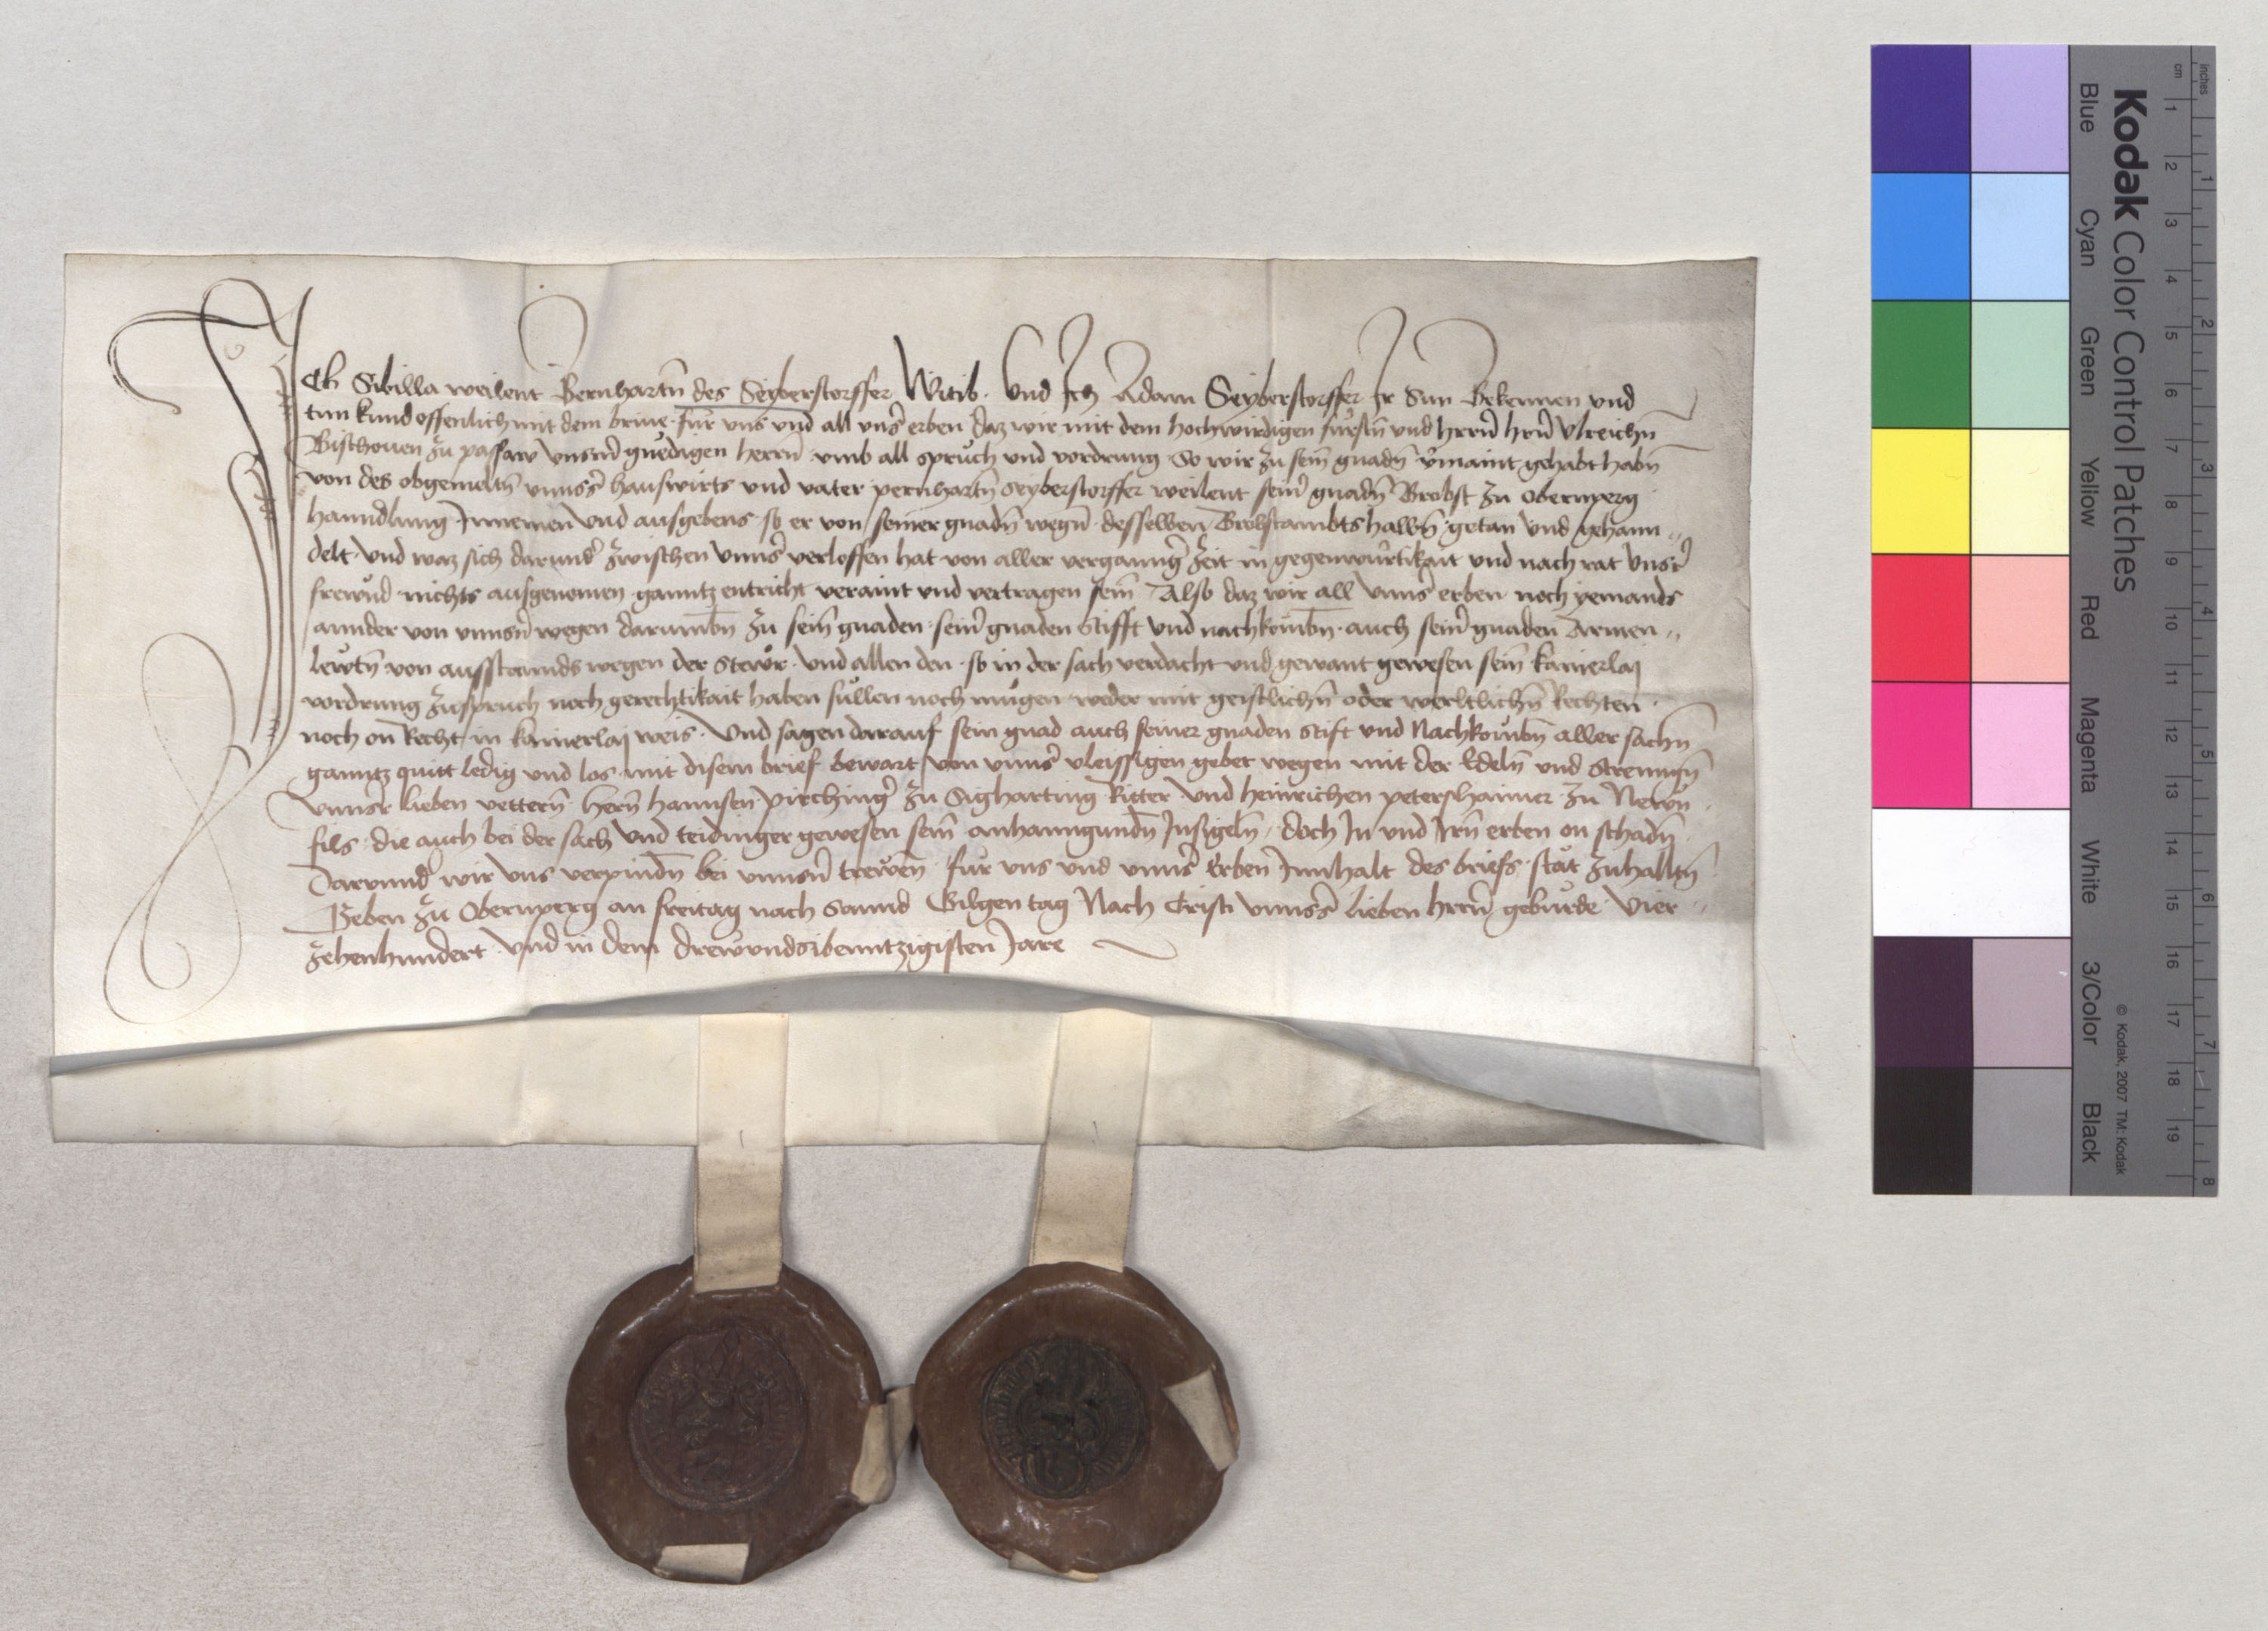 Ich Sibilla weilent Bernhartn̄ des Seyberstorffer Witib · Und Ich Adam Seyberstorffer Ir Sun Bekennen und
tun kund offenlich mit dem brieue für vns und all vns̄ erben daz wir mit dem hochwirdigen fürstn̄ und herrn̄ hrn̄ Vlreichn̄
Bischouen zu passaw vnnsrn̄ gnedigen herrn̄ vmb all sprüch und vordrung · So wir zu sein̄ gnadn̄ v̄maint gehabt habn̄
von des obgemeltn̄ vnnss̄ hauswirts und vater pernhartn̄ seyberstorffer weilent sein̄ gnadn̄ Brobst zu Obernperg
hanndlung Innemen und ausgebens · so er von seiner gnadn̄ wegn̄ desselben Brobstambts halbn̄ getan und gehann„
delt · und waz sich darund̄ zwischen vnns̄ verloffen hat von aller vergangn̄ zeit in gegenwürtikait und nach rat vnsr̄
frewnd nichts ausgenomen ganntz entricht veraint und vertragen sein̄ Also daz wir all vnns̄ erben noch yemands
annder von vnnsn̄ wegen darumbn̄ zu sein̄ gnaden sein̄ gnaden Stifft und nachkombn̄ · auch sein̄ gnaden Armen„
lewtn̄ von ausstannds wegen der Stewr · und allen den · so in der sach verdacht und gewant gewesen sein̄ kainerlaj
vordrung zuspruch noch gerechtikait haben süllen noch mügen weder mit geistlichn̄ oder werltlichn̄ Rechten ·
noch on̄ Recht in kainerlaj weis · Und sagen darauf sein gnad auch seiner gnaden Stift und Nachkombn̄ aller sachn̄
ganntz quitt ledig und los mit disem brief bewart von vnns̄ vleissigen gebet wegen mit der Edeln̄ und Strenngn̄
vnnsr̄ lieben vettern̄ · hern̄ hannsen pirchinḡ zu Sigharting Ritter und heinrichen petershaimer zu Newn„
fils · die auch bei der sach und teidinger gewesen sein̄ anhanngundn̄ Insigeln̄ · doch In und Irn̄ erben on schadn̄
Darunnd̄ wir vns verpindn̄ bei vnnsn̄ trewen̄ für vns und vnns̄ Erben Innhalt des briefs · stät zuhalltn̄
Geben zu Obernperg an freitag nach Sannd Gilgen tag Nach Cristi vnnss̄ lieben hrrn̄ gebürde Vier„
zehenhundert · Und in dem drewundsibenntzigisten Jare
Kodak Color Control Patches
Blue Cyan Green Yellow Red Magenta White 3/Color Black
© Kodak, 2007 TM: Kodak
cm 1 2 3 4 5 6 7 8 9 10 11 12 13 14 15 16 17 18 19
inches 1 2 3 4 5 6 7 8